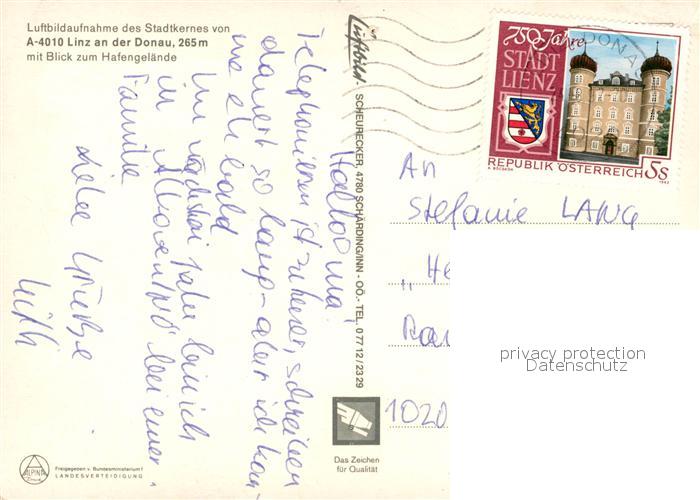 Luftbildaufnahme des Stadtkernes von
A-4010 Linz an der Donau, 265 m
mit Blick zum Hafengelände
Hallo
Telephonieren ist zu teuer, schreiben
dauert so lang - aber ich
bald
Im nächsten Jahr bin ich
in bei einer
Familie
Liebe Grüße
Luftbild SCHEURECKER, 4780 SCHÄRDING/INN - OÖ. - TEL. 0 77 12 / 23 29
750 Jahre
STADT
LIENZ
REPUBLIK ÖSTERREICH 5s
1992
DONAU
An
Stefanie LANG
1020
privacy protection
Datenschutz
Das Zeichen
für Qualität
ALPINA
Freigegeben v. Bundesministerium f.
LANDESVERTEIDIGUNG